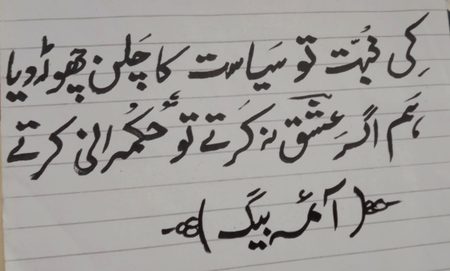 کی محبّت تو سَیاست کا چَلن چھوڑ دیا
ہَم اگر عِشق نہ کَرتے تو حُکمُرانی کرتے
(آئمہ بیگ)